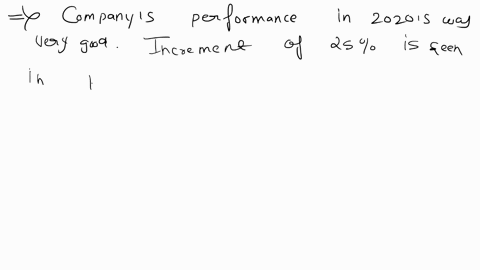 => Company's performance in 2020's was
very good. Increment of 25% is seen
in